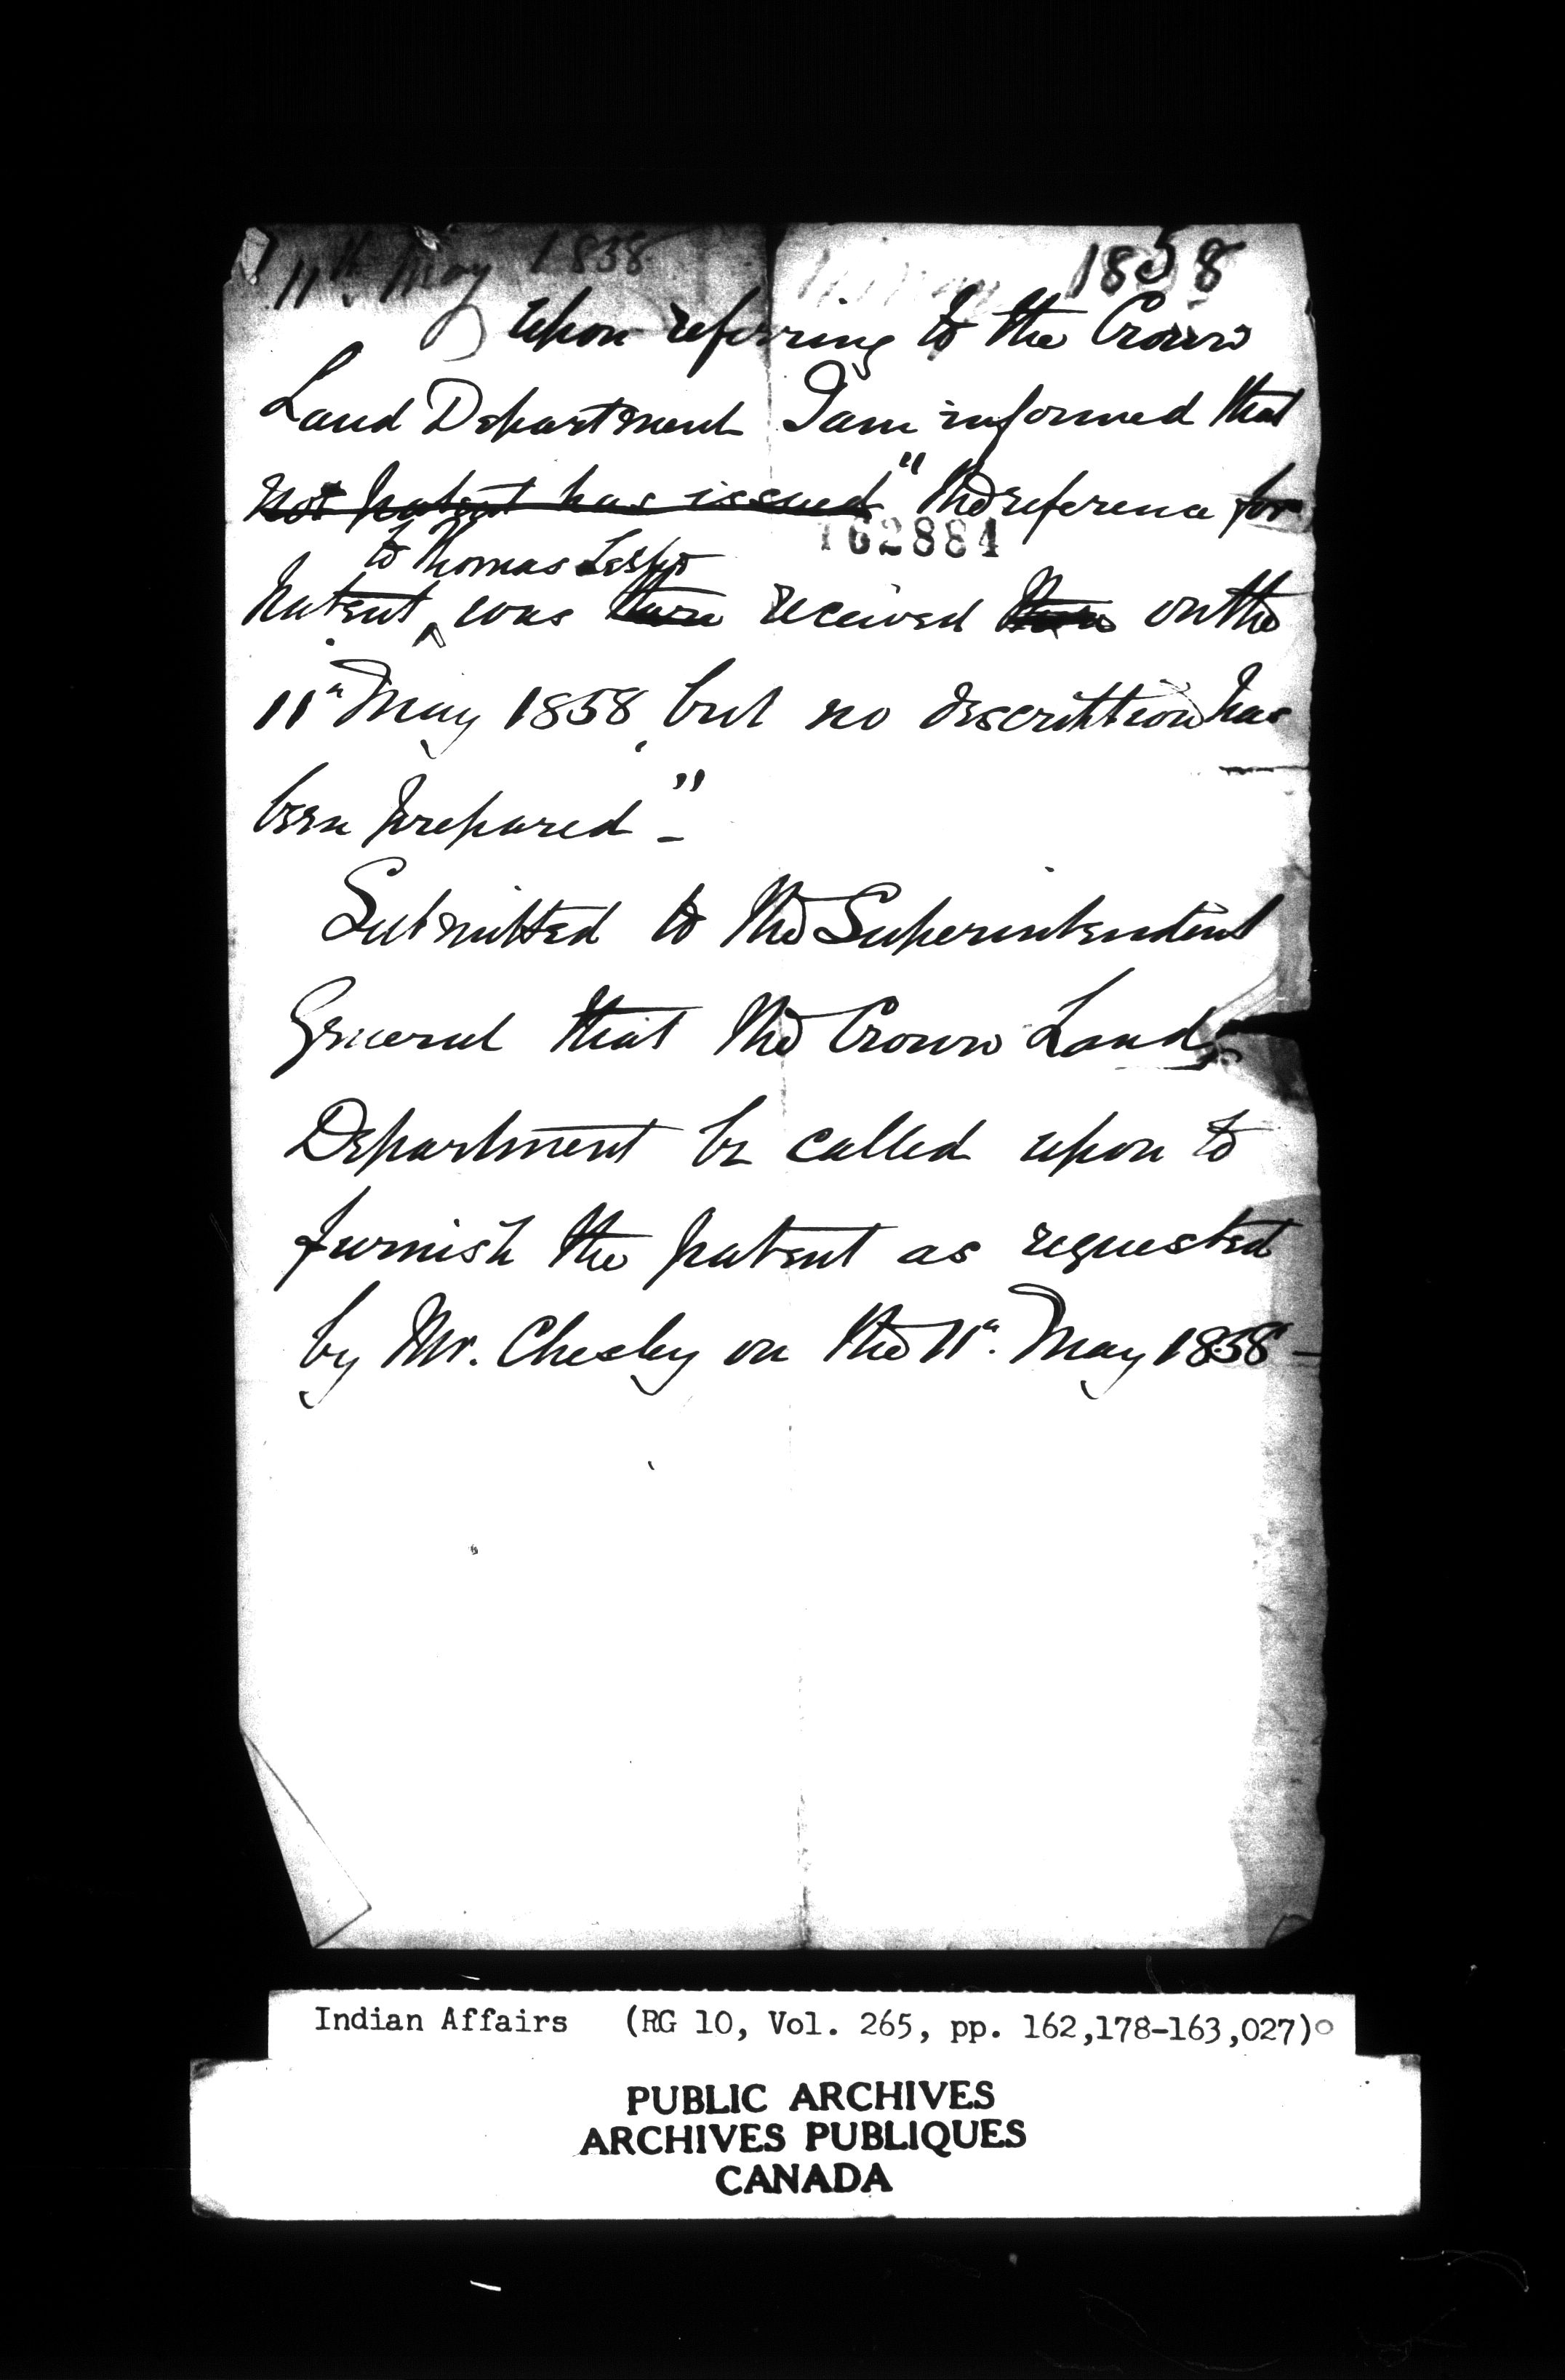 11th May 1858 1858
Upon referring to the Crown
Land Department I am informed that
~~not patent has issued~~ "the reference for
162884
to Thomas Leslie
Patent, was received on the
11th May 1858, but no description has
been prepared" -
Submitted to the Superintendent
General that the Crown Land
Department be called upon to
furnish the patent as requested
by Mr. Chesley on the 11th. May 1858 -
Indian Affairs (RG 10, Vol. 265, pp. 162,178-163,027)
PUBLIC ARCHIVES
ARCHIVES PUBLIQUES
CANADA